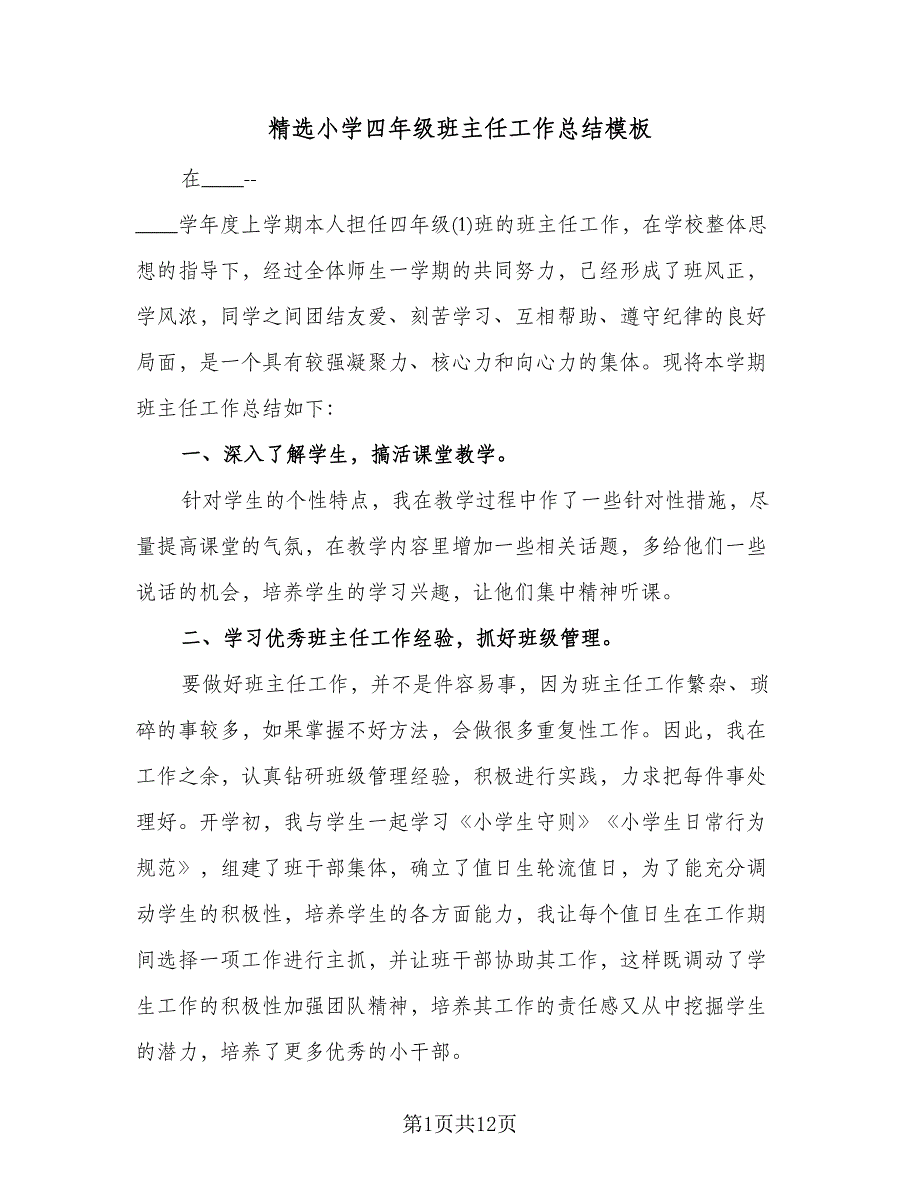 精选小学四年级班主任工作总结模板
在____--
____学年度上学期本人担任四年级(1)班的班主任工作，在学校整体思
想的指导下，经过全体师生一学期的共同努力，己经形成了班风正，
学风浓，同学之间团结友爱、刻苦学习、互相帮助、遵守纪律的良好
局面，是一个具有较强凝聚力、核心力和向心力的集体。现将本学期
班主任工作总结如下：
一、深入了解学生，搞活课堂教学。
针对学生的个性特点，我在教学过程中作了一些针对性措施，尽
量提高课堂的气氛，在教学内容里增加一些相关话题，多给他们一些
说话的机会，培养学生的学习兴趣，让他们集中精神听课。
二、学习优秀班主任工作经验，抓好班级管理。
要做好班主任工作，并不是件容易事，因为班主任工作繁杂、琐
碎的事较多，如果掌握不好方法，会做很多重复性工作。因此，我在
工作之余，认真钻研班级管理经验，积极进行实践，力求把每件事处
理好。开学初，我与学生一起学习《小学生守则》《小学生日常行为
规范》，组建了班干部集体，确立了值日生轮流值日，为了能充分调
动学生的积极性，培养学生的各方面能力，我让每个值日生在工作期
间选择一项工作进行主抓，并让班干部协助其工作，这样既调动了学
生工作的积极性加强团队精神，培养其工作的责任感又从中挖掘学生
的潜力，培养了更多优秀的小干部。
第1页共12页